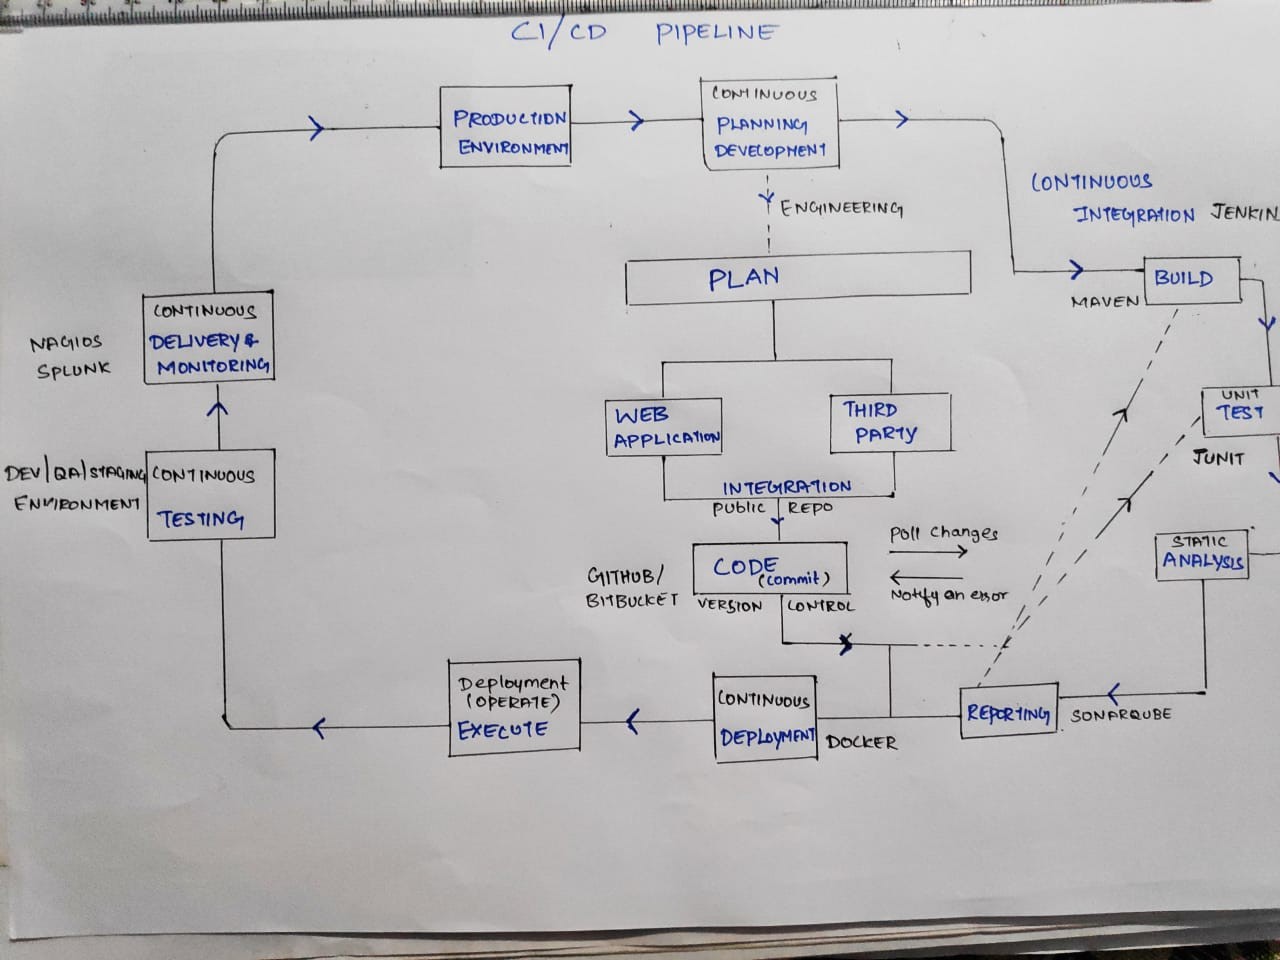 CI/CD PIPELINE
PRODUCTION
ENVIRONMENT
CONTINUOUS
PLANNING
DEVELOPMENT
ENGINEERING
CONTINUOUS
INTEGRATION JENKIN
PLAN
BUILD
MAVEN
CONTINUOUS
DELIVERY &
MONITORING
NAGIOS
SPLUNK
WEB
APPLICATION
THIRD
PARTY
UNIT
TEST
JUNIT
DEV/QA/STAGING
ENVIRONMENT
CONTINUOUS
TESTING
INTEGRATION
PUBLIC REPO
CODE
(commit)
VERSION CONTROL
GITHUB/
BITBUCKET
Poll changes
Notify an error
STATIC
ANALYSIS
Deployment
(OPERATE)
EXECUTE
CONTINUOUS
DEPLOYMENT
DOCKER
REPORTING
SONARQUBE